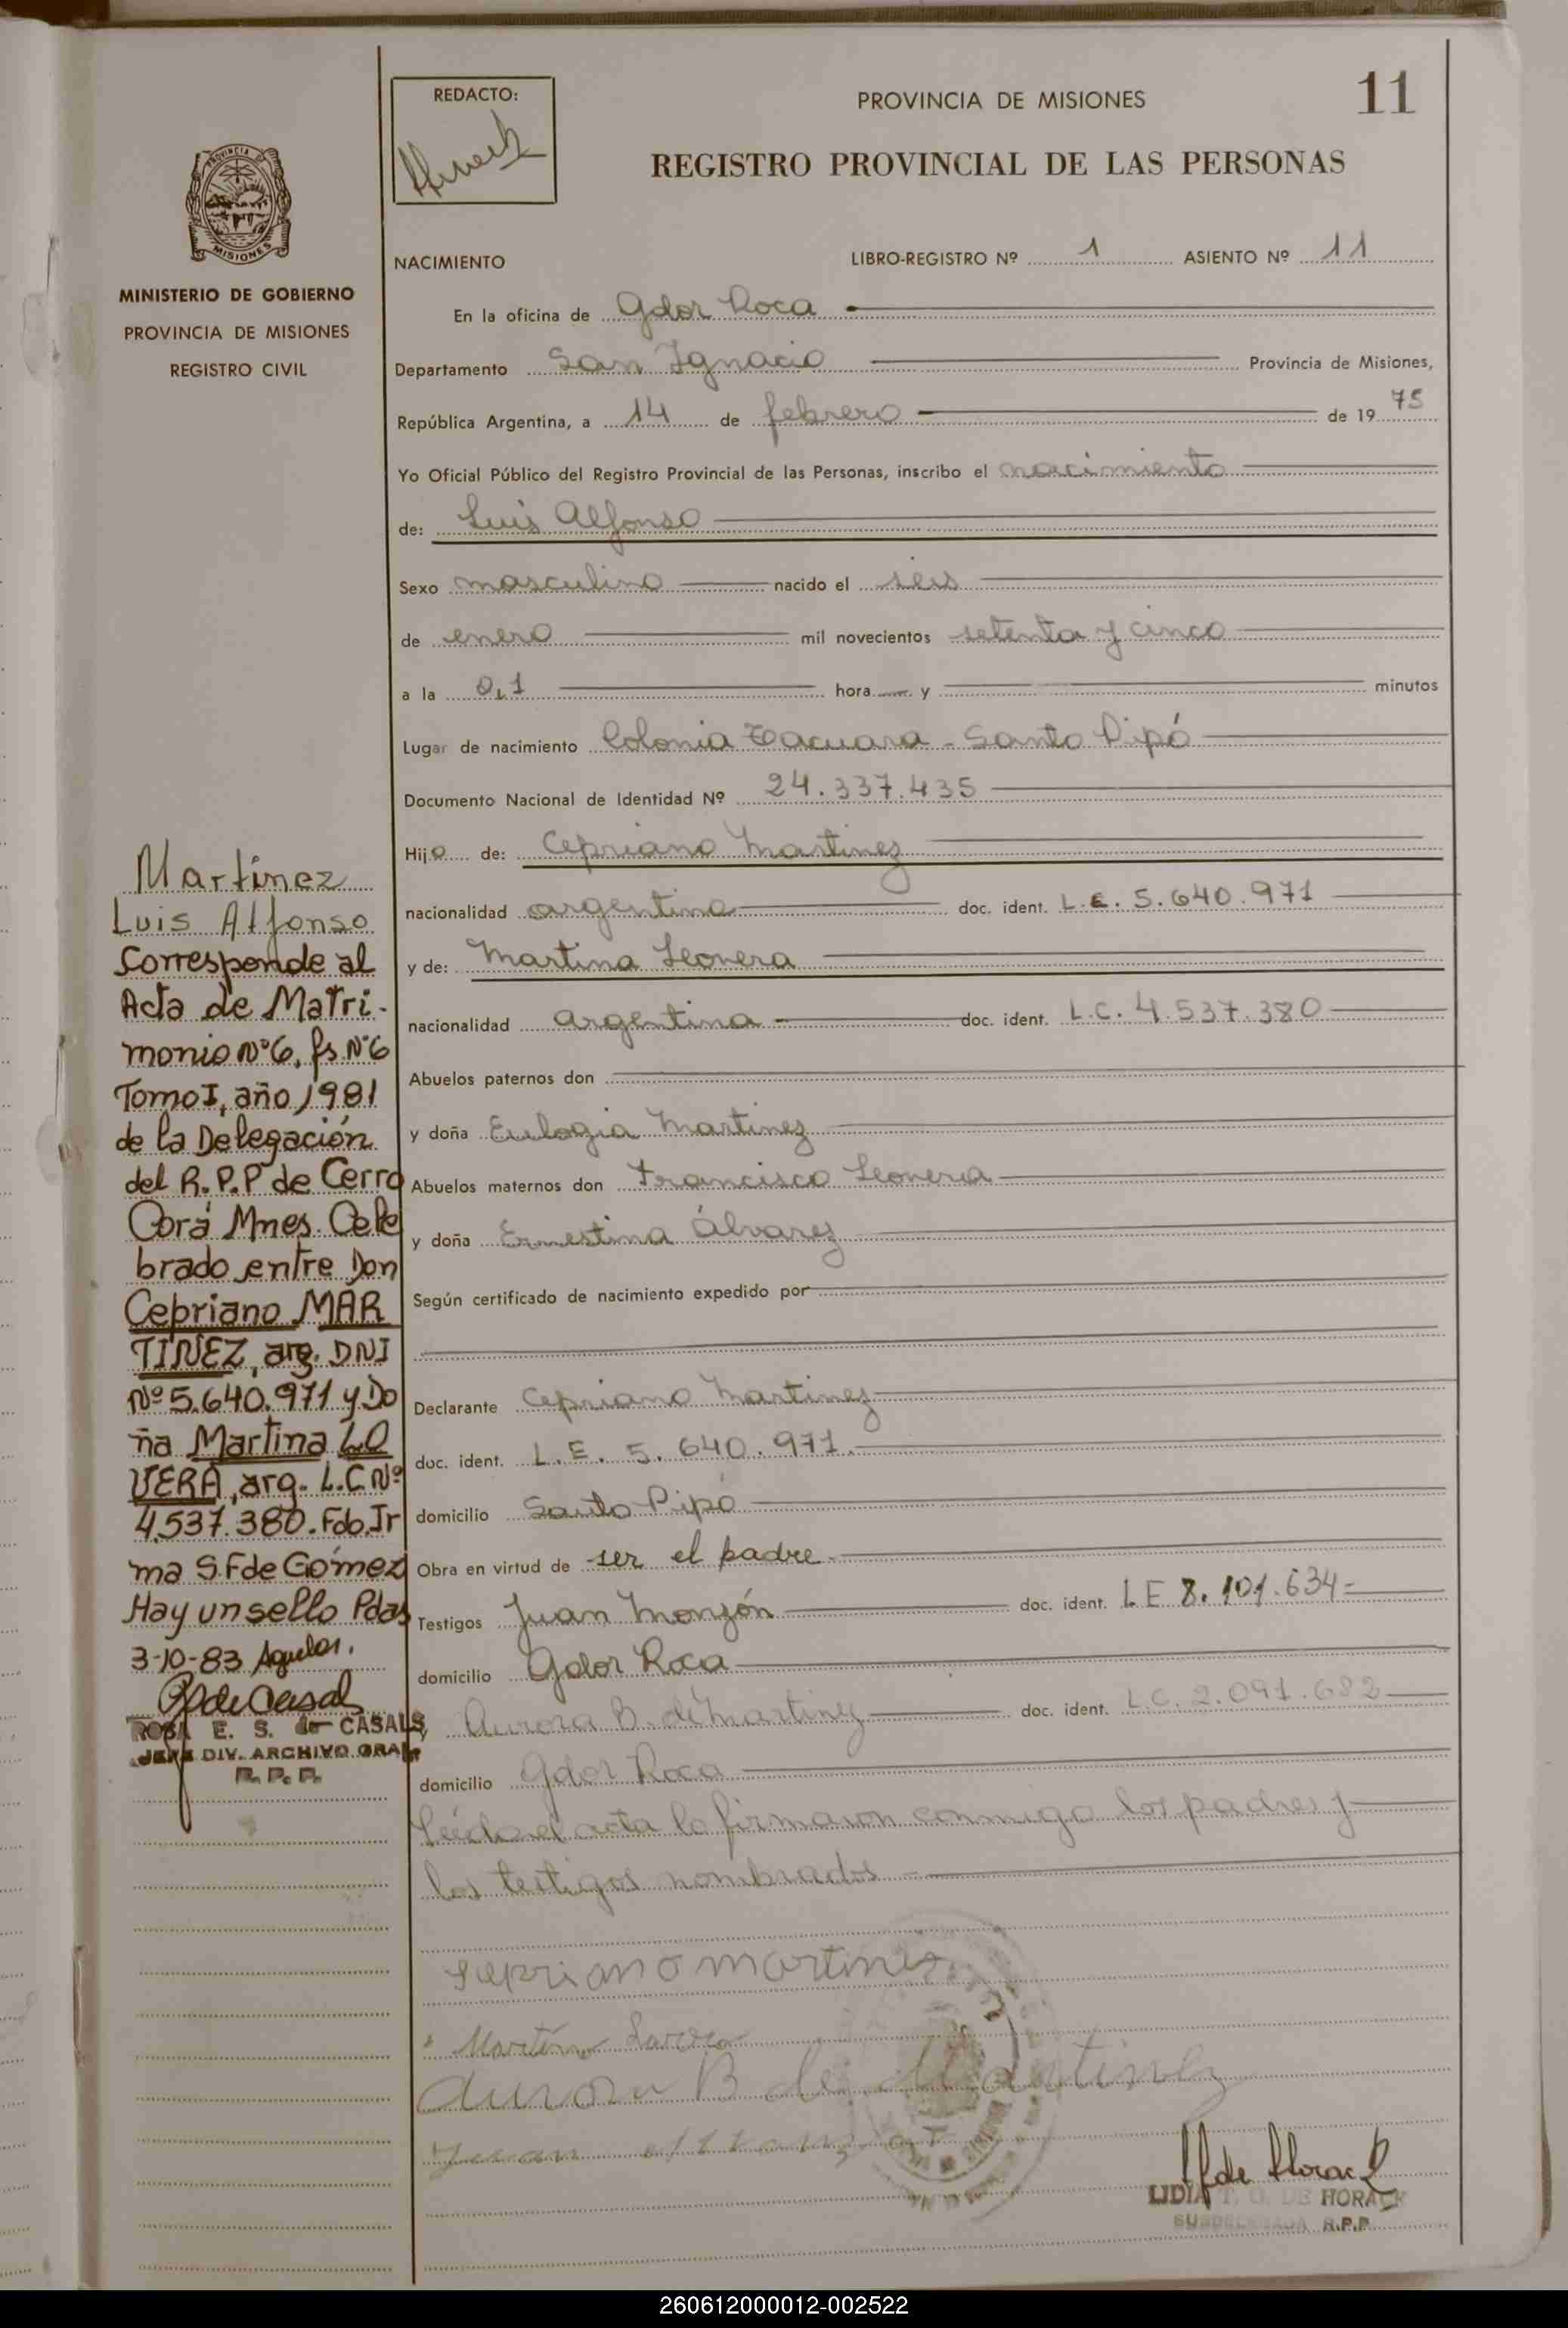 11
REDACTO:
PROVINCIA DE MISIONES
REGISTRO PROVINCIAL DE LAS PERSONAS
PROVINCIA
MISIONES
MINISTERIO DE GOBIERNO
PROVINCIA DE MISIONES
REGISTRO CIVIL
NACIMIENTO LIBRO-REGISTRO Nº 1 ASIENTO Nº 11
En la oficina de Gdor Roca
Departamento San Ignacio Provincia de Misiones,
República Argentina, a 14 de febrero de 19 75
Yo Oficial Público del Registro Provincial de las Personas, inscribo el nacimiento
de: Luis Alfonso
Sexo masculino nacido el seis
de enero mil novecientos setenta y cinco
a la 0,1 hora y minutos
Lugar de nacimiento Colonia Tacuara - Santo Pipó
Documento Nacional de Identidad Nº 24.337.435
Hijo de: Cepriano Martinez
nacionalidad argentina doc. ident. L.E. 5.640.971
y de: Martina Lovera
nacionalidad argentina doc. ident. L.C. 4.537.380
Abuelos paternos don
y doña Eulogia Martinez
Abuelos maternos don Francisco Lovera
y doña Ernestina Álvarez
Según certificado de nacimiento expedido por
Declarante Cepriano Martinez
doc. ident. L.E. 5.640.971.
domicilio Santo Pipó
Obra en virtud de ser el padre.
Testigos Juan Monzón doc. ident. L.E 8.101.634=
domicilio Gdor Roca
y Aurora B. de Martinez doc. ident. L.C. 2.091.682
domicilio Gdor Roca
Leída el acta la firmaron conmigo los padres y
los testigos nombrados
Martinez
Luis Alfonso
Corresponde al
Acta de Matri-
monio Nº6, fs Nº6
Tomo I, año 1981
de la Delegación
del R.P.P de Cerro
Corá Mnes. Cele
brado entre Don
Cepriano MAR
TINEZ, arg. DNI
Nº 5.640.971 y Do
ña Martina LO
VERA, arg. L.C Nº
4.537.380. Fdo. Ir
ma S.F de Gómez
Hay un sello Pdas
3-10-83
ROSA E. S. de CASALS
JEFE DIV. ARCHIVO GRAL
R. P. P.
Sepriano martines
Aurora B de Martinez
Juan
LIDIA T. O. DE HORACK
SUBDELEGADA R.P.P.
260612000012-002522